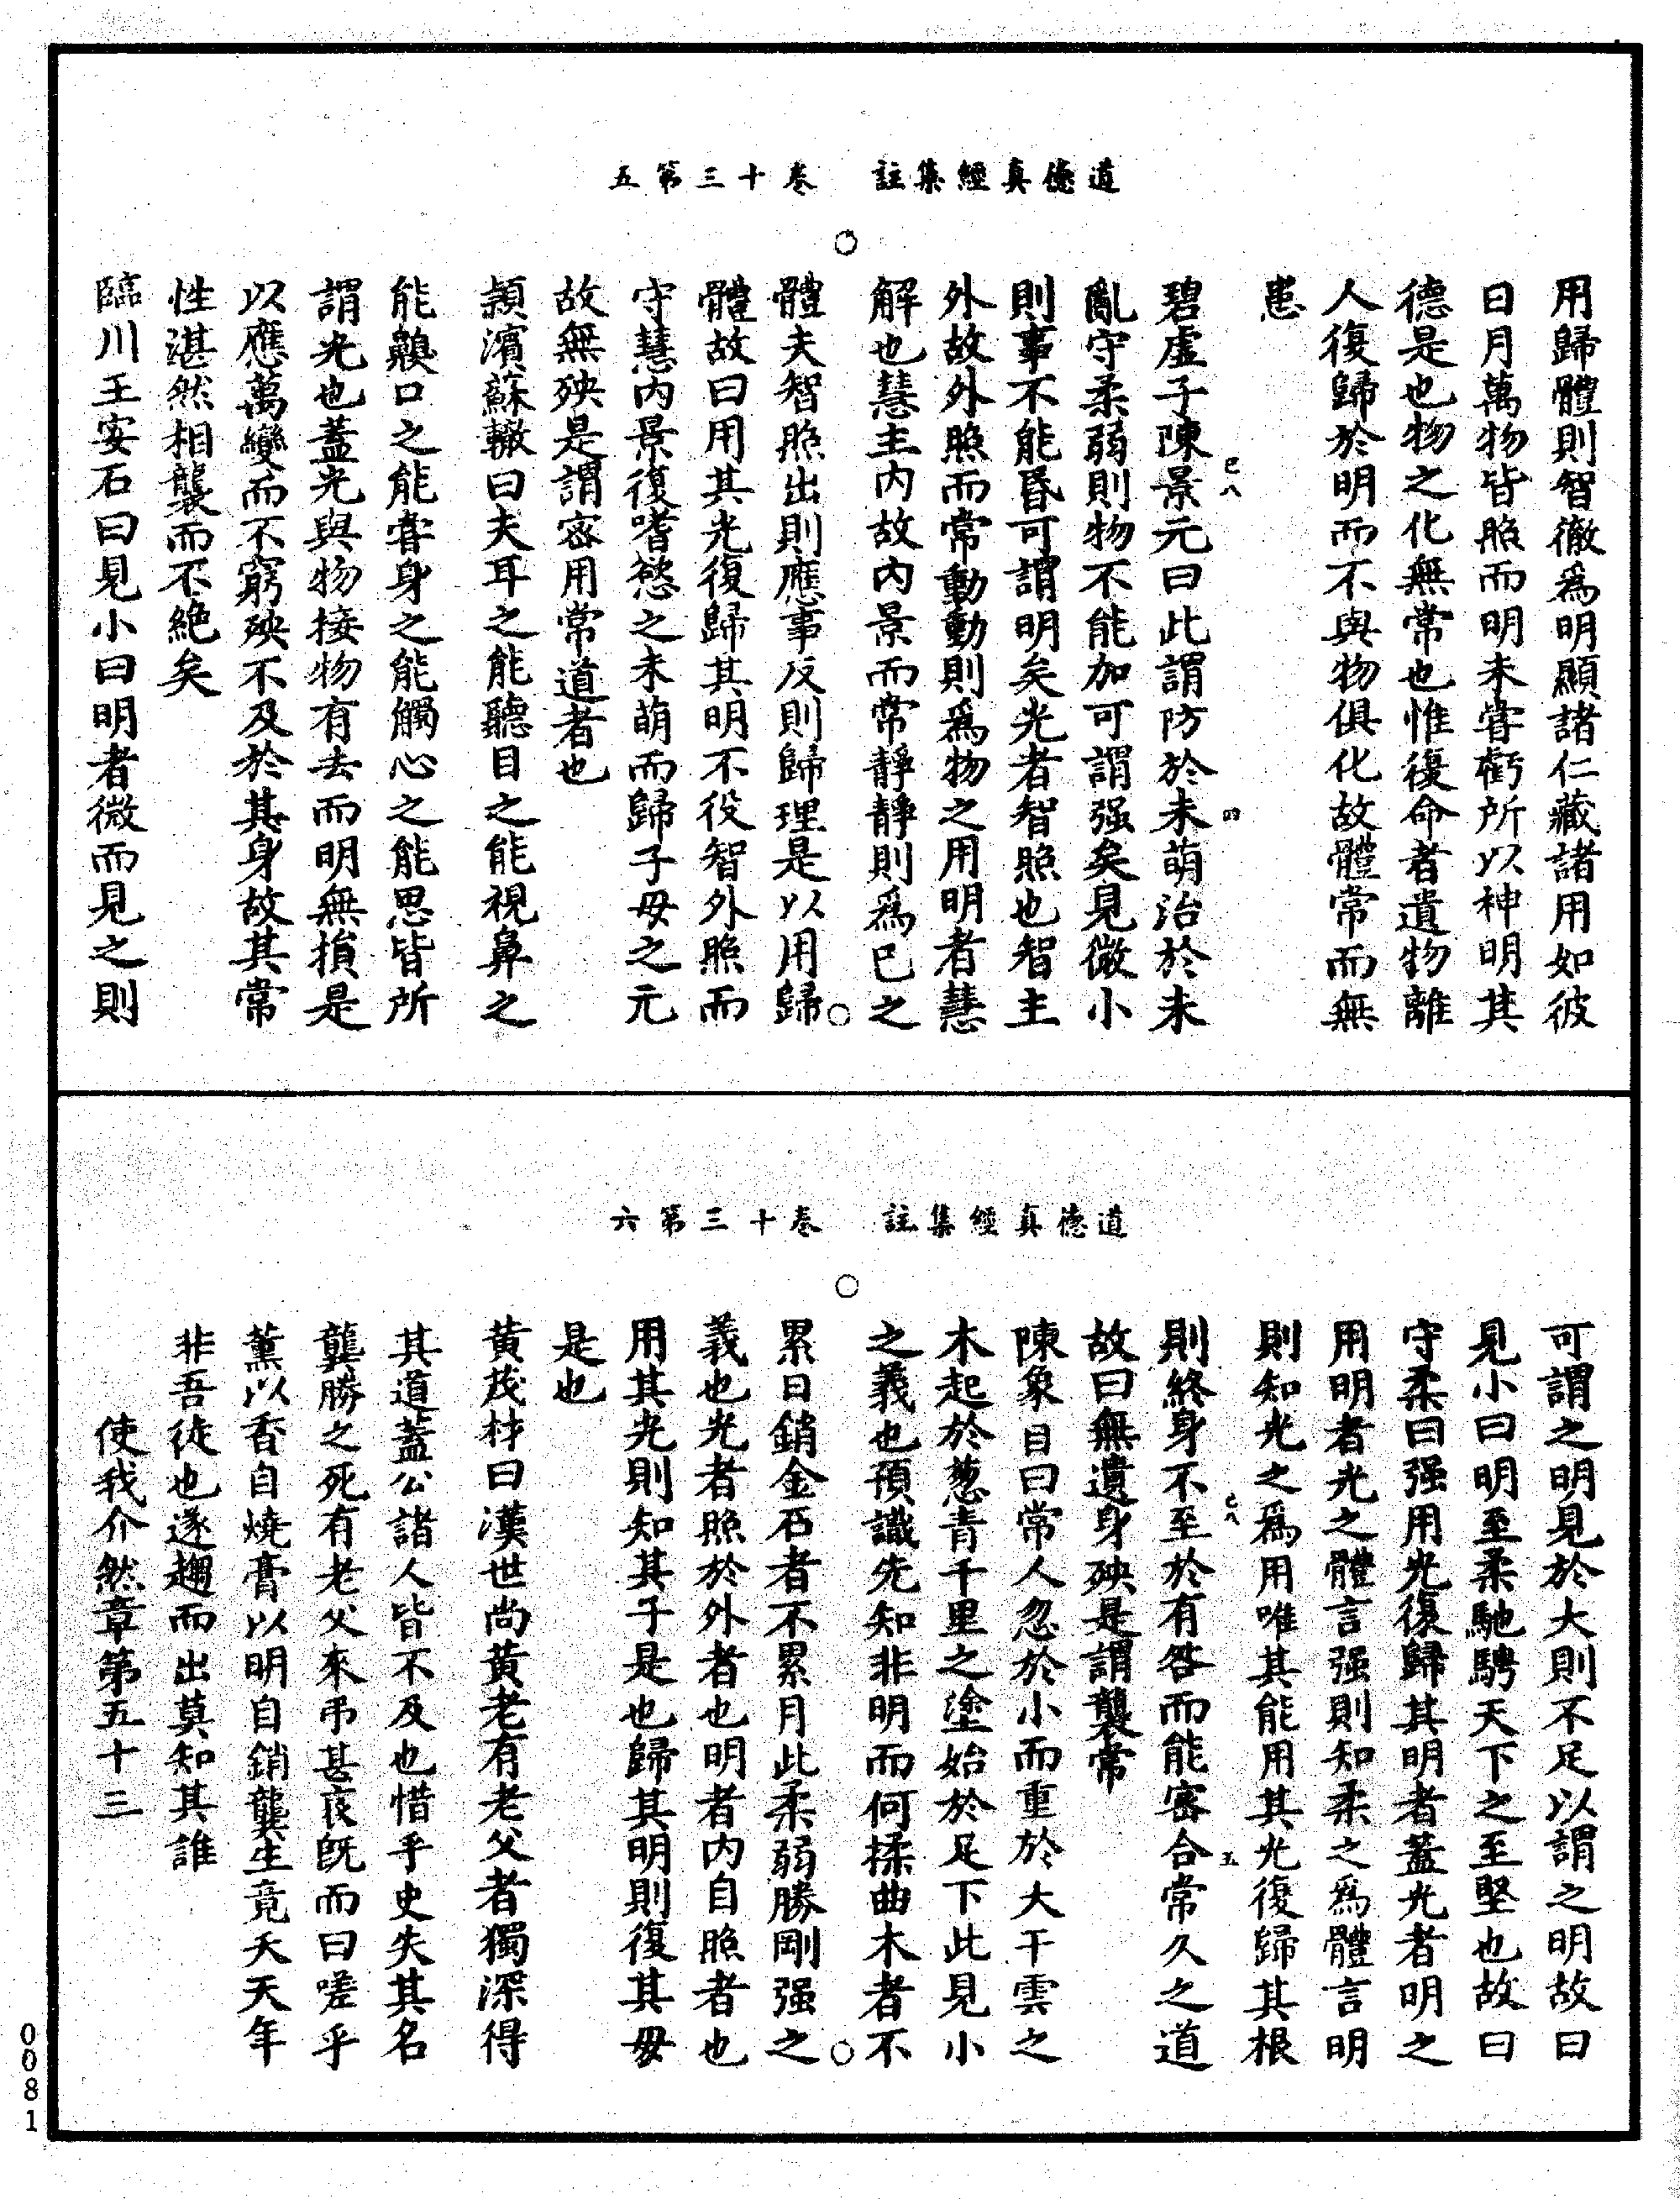 道德真經集註　卷十三第五
用歸體則智徹爲明顯諸仁藏諸用如彼
日月萬物皆照而明未嘗虧所以神明其
德是也物之化無常也惟復命者遺物離
人復歸於明而不與物俱化故體常而無
患
碧虛子陳景元曰此謂防於未萌治於未
亂守柔弱則物不能加可謂强矣見微小
則事不能昬可謂明矣光者智照也智主
外故外照而常動動則爲物之用明者慧
解也慧主內故內景而常靜靜則爲已之
體夫智照出則應事反則歸理是以用歸
體故曰用其光復歸其明不役智外照而
守慧內景復嗜慾之未萌而歸子毋之元
故無殃是謂密用常道者也
頴濱蘇轍曰夫耳之能聽目之能視鼻之
能齅口之能甞身之能觸心之能思皆所
謂光也蓋光與物接物有去而明無損是
以應萬變而不窮殃不及於其身故其常
性湛然相襲而不絶矣
臨川王安石曰見小曰明者微而見之則
已八
四
道德真經集註　卷十三第六
可謂之明見於大則不足以謂之明故曰
見小曰明至柔馳騁天下之至堅也故曰
守柔曰强用光復歸其明者蓋光者明之
用明者光之體言强則知柔之爲體言明
則知光之爲用唯其能用其光復歸其根
則終身不至於有咎而能密合常久之道
故曰無遺身殃是謂襲常
陳象目曰常人忽於小而重於大干雲之
木起於葱青千里之塗始於足下此見小
之義也預識先知非明而何揉曲木者不
累日銷金石者不累月此柔弱勝剛强之
義也光者照於外者也明者內自照者也
用其光則知其子是也歸其明則復其毋
是也
黃茂材曰漢世尚黃老有老父者獨深得
其道蓋公諸人皆不及也惜乎史失其名
龔勝之死有老父來弔甚哀既而曰嗟乎
薰以香自燒膏以明自銷龔生竟夭天年
非吾徒也遂趨而出莫知其誰
使我介然章第五十三
已八
五
0081